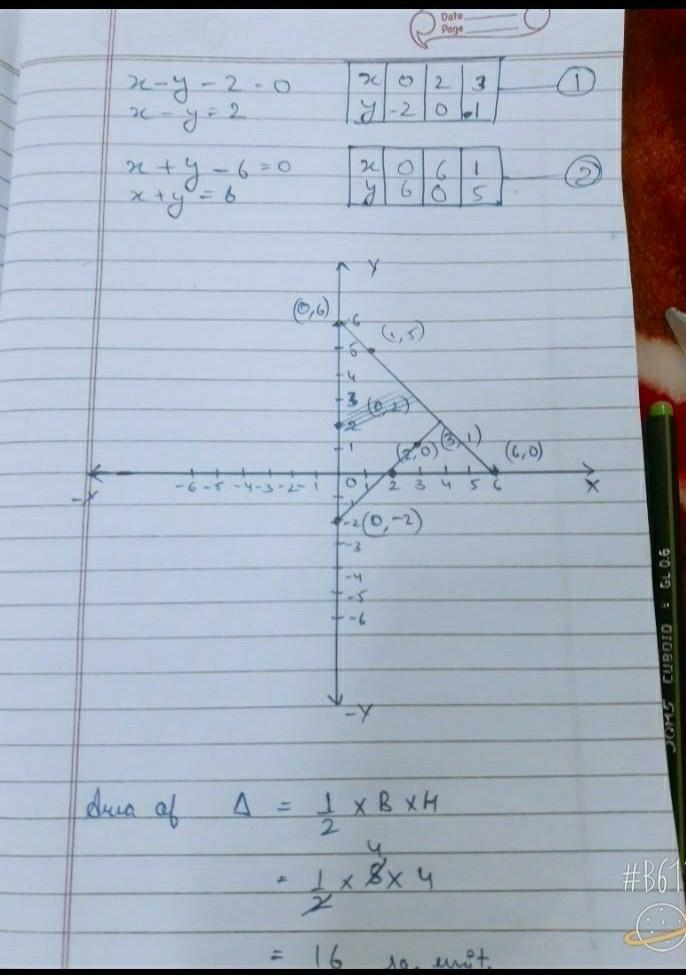 Date
Page
x - y - 2 = 0
x - y = 2
x 0 2 3
y -2 0 1
1
x + y - 6 = 0
x + y = 6
x 0 6 1
y 6 0 5
2
Y
(0,6) 6
5 (1,5)
4
3 (0,2)
2
1 (2,0) (3,1) (6,0)
-X -6 -5 -4 -3 -2 -1 0 1 2 3 4 5 6 X
-1
-2 (0,-2)
-3
-4
-5
-6
-Y
Area of Δ = 1/2 × B × H
4
= 1/2 × 8 × 4
= 16 sq. unit.
JOMS CUBOID GL 0.6
#B61